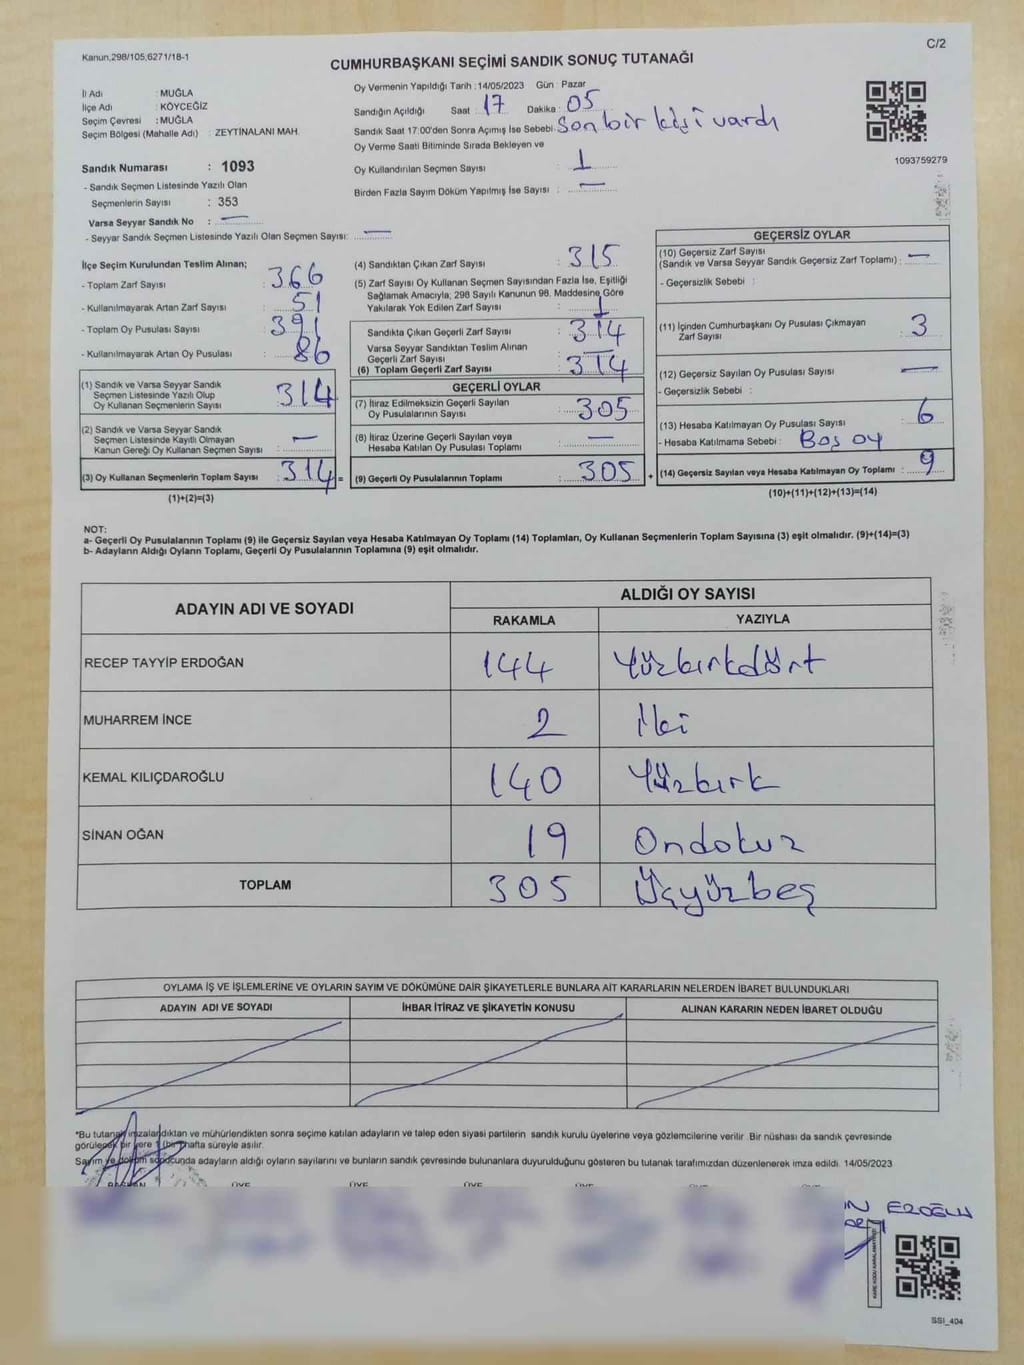 Kanun,298/105,6271/18-1
C/2
CUMHURBAŞKANI SEÇİMİ SANDIK SONUÇ TUTANAĞI
İl Adı : MUĞLA
İlçe Adı : KÖYCEĞİZ
Seçim Çevresi : MUĞLA
Seçim Bölgesi (Mahalle Adı) : ZEYTİNALANI MAH.
Oy Vermenin Yapıldığı Tarih :14/05/2023 Gün : Pazar
Sandığın Açıldığı Saat : 17 Dakika : 05
Sandık Saat 17:00'den Sonra Açımış İse Sebebi: Son bir kişi vardı
Oy Verme Saati Bitiminde Sırada Bekleyen ve
Oy Kullandırılan Seçmen Sayısı : 1
Birden Fazla Sayım Döküm Yapılmış İse Sayısı : —
1093759279
Sandık Numarası : 1093
- Sandık Seçmen Listesinde Yazılı Olan
Seçmenlerin Sayısı : 353
Varsa Seyyar Sandık No : —
- Seyyar Sandık Seçmen Listesinde Yazılı Olan Seçmen Sayısı: —
İlçe Seçim Kurulundan Teslim Alınan;
- Toplam Zarf Sayısı : 366
- Kullanılmayarak Artan Zarf Sayısı : 51
- Toplam Oy Pusulası Sayısı : 391
- Kullanılmayarak Artan Oy Pusulası : 86
(1) Sandık ve Varsa Seyyar Sandık
Seçmen Listesinde Yazılı Olup
Oy Kullanan Seçmenlerin Sayısı : 314
(2) Sandık ve Varsa Seyyar Sandık
Seçmen Listesinde Kayıtlı Olmayan
Kanun Gereği Oy Kullanan Seçmen Sayısı : —
(3) Oy Kullanan Seçmenlerin Toplam Sayısı : 314 =
(1)+(2)=(3)
(4) Sandıktan Çıkan Zarf Sayısı : 315
(5) Zarf Sayısı Oy Kullanan Seçmen Sayısından Fazla İse, Eşitliği
Sağlamak Amacıyla; 298 Sayılı Kanunun 98. Maddesine Göre
Yakılarak Yok Edilen Zarf Sayısı : 1
Sandıkta Çıkan Geçerli Zarf Sayısı : 314
Varsa Seyyar Sandıktan Teslim Alınan
Geçerli Zarf Sayısı :
(6) Toplam Geçerli Zarf Sayısı : 314
GEÇERLİ OYLAR
(7) İtiraz Edilmeksizin Geçerli Sayılan
Oy Pusulalarının Sayısı : 305
(8) İtiraz Üzerine Geçerli Sayılan veya
Hesaba Katılan Oy Pusulası Toplamı : —
(9) Geçerli Oy Pusulalarının Toplamı : 305 +
GEÇERSİZ OYLAR
(10) Geçersiz Zarf Sayısı
(Sandık ve Varsa Seyyar Sandık Geçersiz Zarf Toplamı) : —
- Geçersizlik Sebebi :
(11) İçinden Cumhurbaşkanı Oy Pusulası Çıkmayan
Zarf Sayısı : 3
(12) Geçersiz Sayılan Oy Pusulası Sayısı : —
- Geçersizlik Sebebi :
(13) Hesaba Katılmayan Oy Pusulası Sayısı : 6
- Hesaba Katılmama Sebebi : Boş oy
(14) Geçersiz Sayılan veya Hesaba Katılmayan Oy Toplamı : 9
(10)+(11)+(12)+(13)=(14)
NOT:
a- Geçerli Oy Pusulalarının Toplamı (9) ile Geçersiz Sayılan veya Hesaba Katılmayan Oy Toplamı (14) Toplamları, Oy Kullanan Seçmenlerin Toplam Sayısına (3) eşit olmalıdır. (9)+(14)=(3)
b- Adayların Aldığı Oyların Toplamı, Geçerli Oy Pusulalarının Toplamına (9) eşit olmalıdır.
ADAYIN ADI VE SOYADI
ALDIĞI OY SAYISI
RAKAMLA YAZIYLA
RECEP TAYYİP ERDOĞAN 144 Yüzkırkdört
MUHARREM İNCE 2 İki
KEMAL KILIÇDAROĞLU 140 Yüzkırk
SİNAN OĞAN 19 Ondokuz
TOPLAM 305 Üçyüzbeş
OYLAMA İŞ VE İŞLEMLERİNE VE OYLARIN SAYIM VE DÖKÜMÜNE DAİR ŞİKAYETLERLE BUNLARA AİT KARARLARIN NELERDEN İBARET BULUNDUKLARI
ADAYIN ADI VE SOYADI İHBAR İTİRAZ VE ŞİKAYETİN KONUSU ALINAN KARARIN NEDEN İBARET OLDUĞU
*Bu tutanak imzalandıktan ve mühürlendikten sonra seçime katılan adayların ve talep eden siyasi partilerin sandık kurulu üyelerine veya gözlemcilerine verilir. Bir nüshası da sandık çevresinde
görülecek bir yere 1 (bir) hafta süreyle asılır.
Sayım ve döküm sonucunda adayların aldığı oyların sayılarını ve bunların sandık çevresinde bulunanlara duyurulduğunu gösteren bu tutanak tarafımızdan düzenlenerek imza edildi. 14/05/2023
BAŞKAN ÜYE ÜYE ÜYE ÜYE ÜYE
EROĞLU
SSI_404